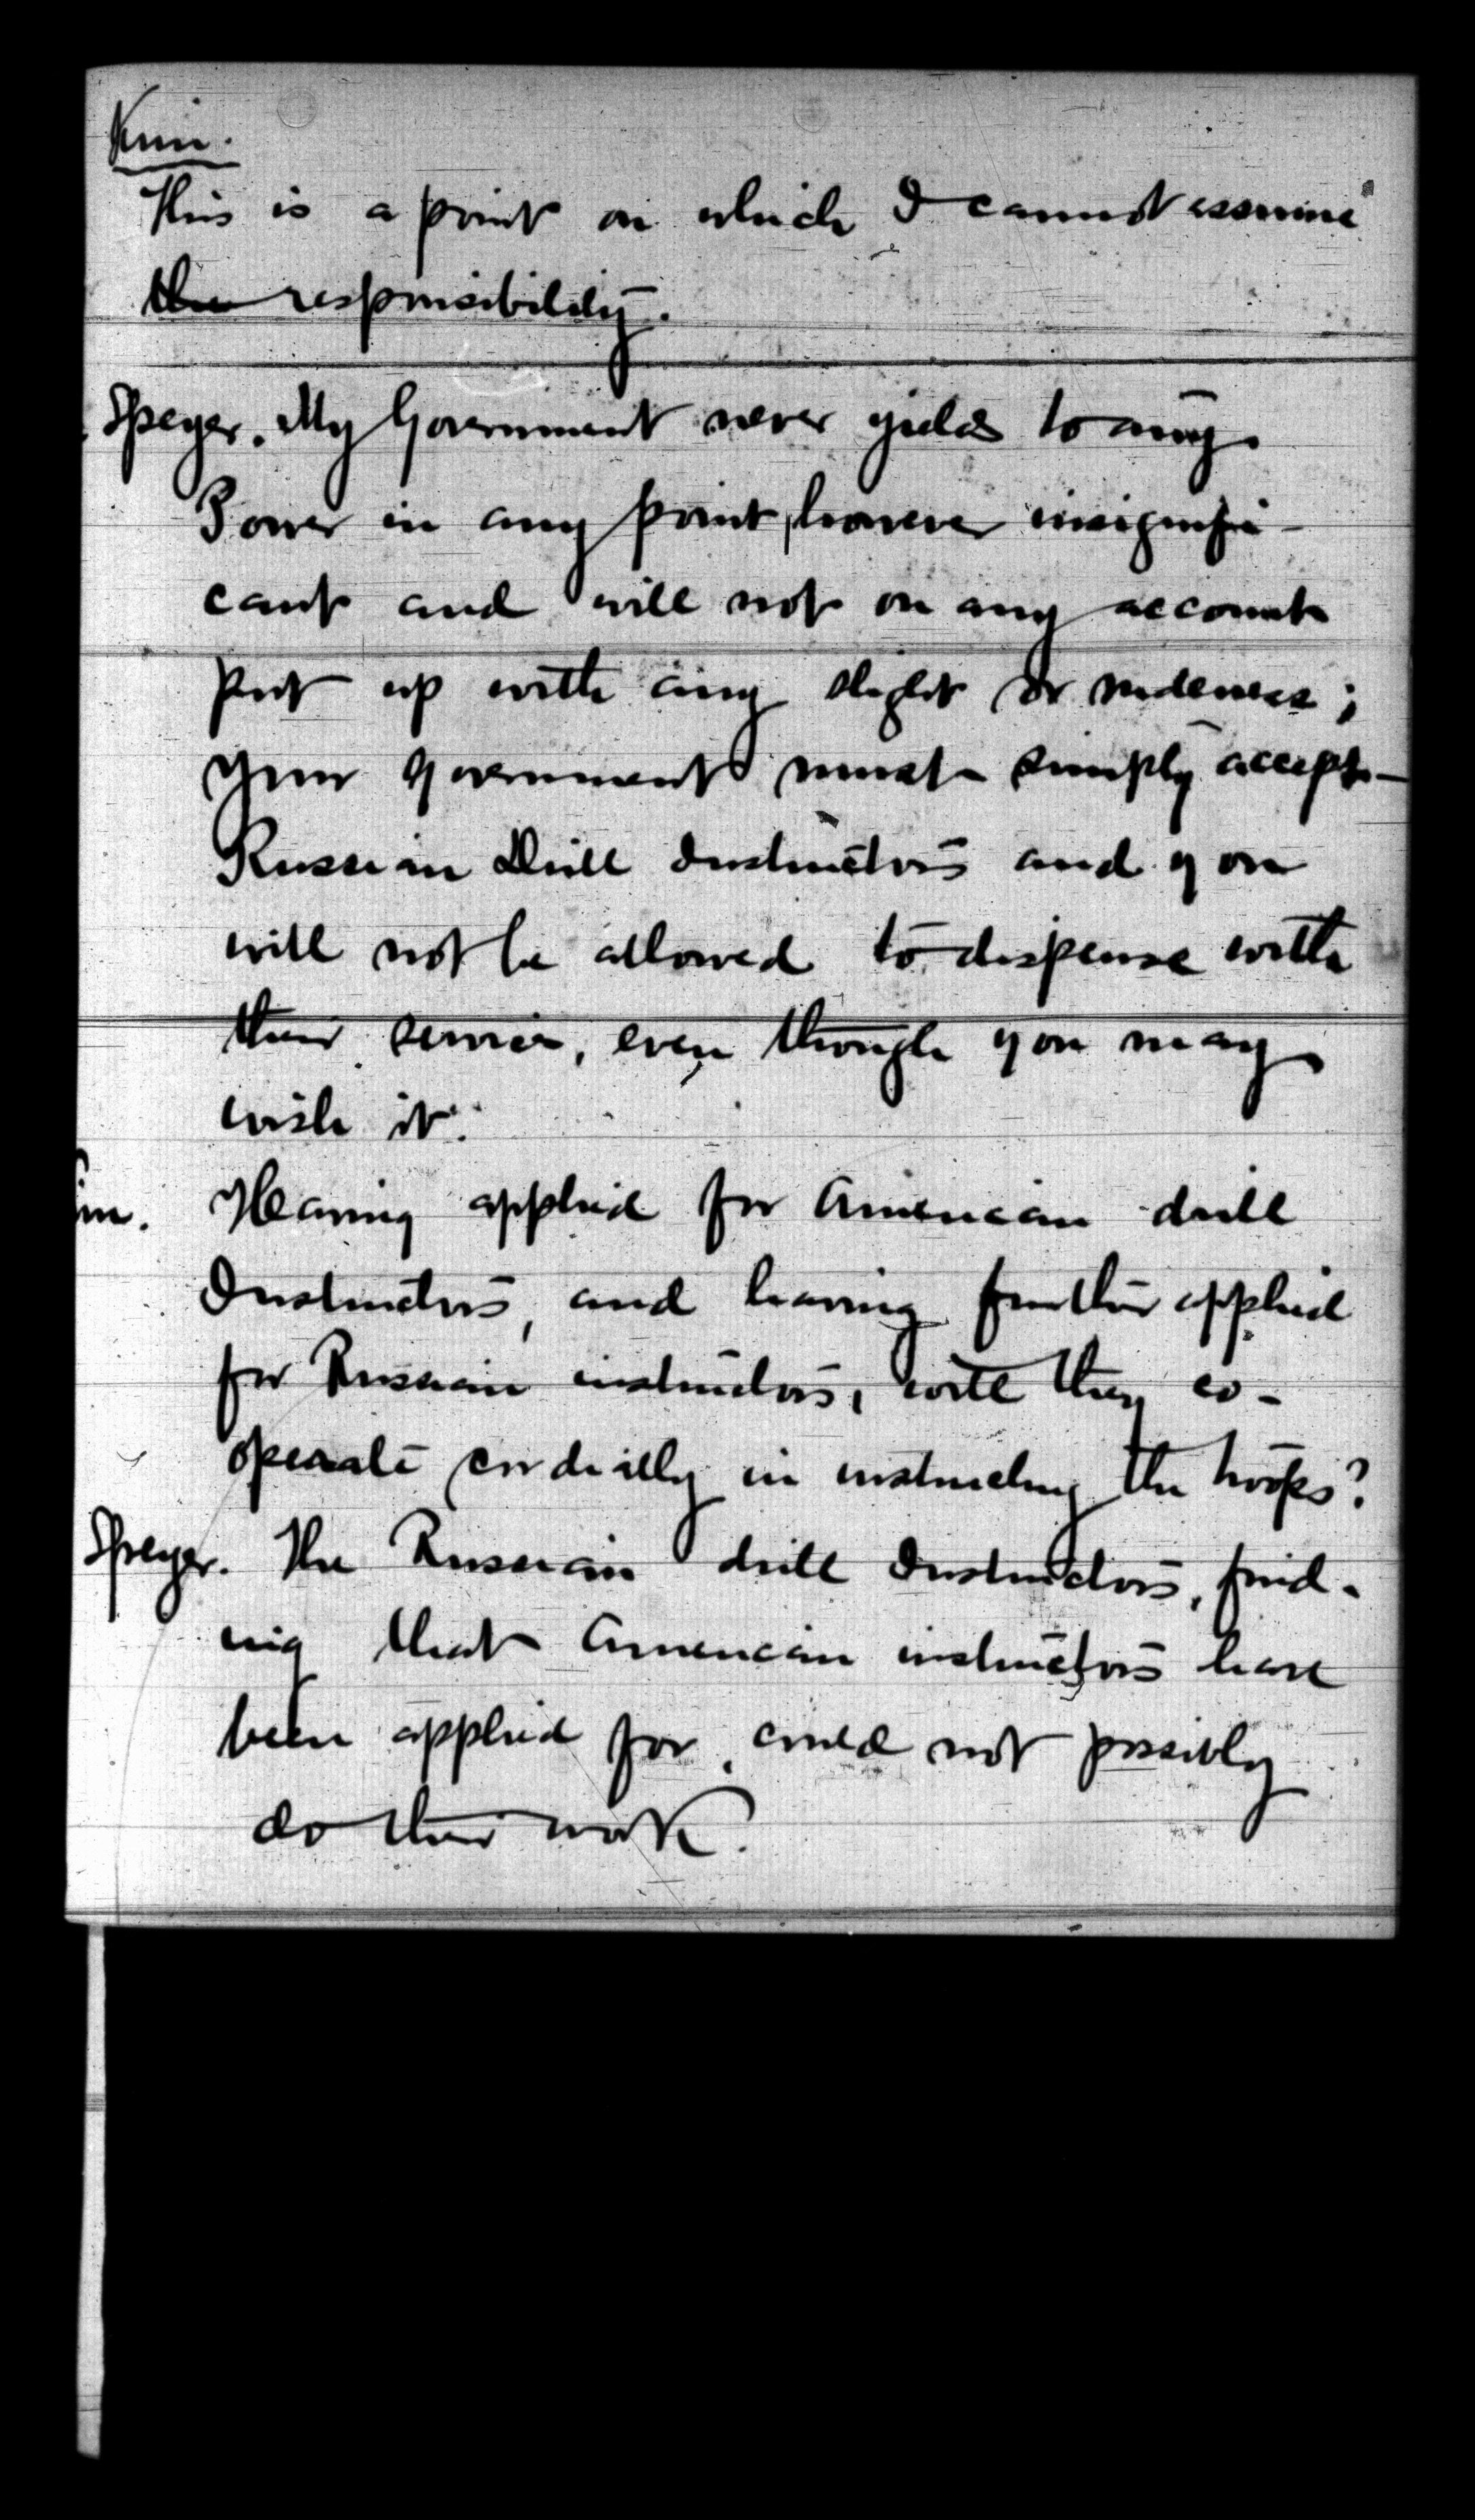 Kim.
This is a point on which I cannot assume
the responsibility.
Speyer. My Government never yields to any
Power in any point, however insignifi-
cant and will not on any account
put up with any slight or rudeness;
your Government must simply accept
Russian Drill Instructors and you
will not be allowed to dispense with
their services, even though you may
wish it.
im. Having applied for American drill
Instructors, and having further applied
for Russian instructors, will they co-
operate cordially in instructing the troops?
Speyer. The Russian drill Instructors, find-
ing that American instructors have
been applied for, could not possibly
do their work.